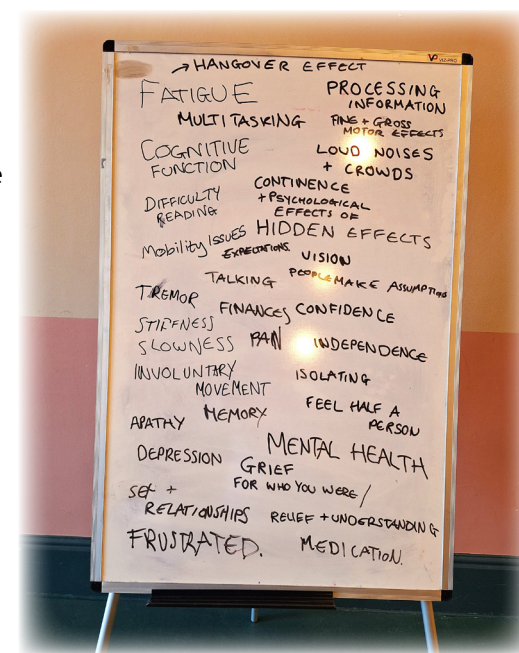 VIZ-PRO
→ HANGOVER EFFECT
FATIGUE
PROCESSING
INFORMATION
MULTITASKING
FINE + GROSS
MOTOR EFFECTS
COGNITIVE
FUNCTION
LOUD NOISES
+ CROWDS
CONTINENCE
+ PSYCHOLOGICAL
EFFECTS OF
DIFFICULTY
READING
HIDDEN EFFECTS
Mobility ISSUES
EXPECTATIONS
VISION
TALKING
PEOPLE MAKE ASSUMPTIONS
TREMOR
FINANCES
CONFIDENCE
STIFFNESS
SLOWNESS
PAIN
INDEPENDENCE
INVOLUNTARY
MOVEMENT
ISOLATING
APATHY
MEMORY
FEEL HALF A
PERSON
MENTAL HEALTH
DEPRESSION
GRIEF
FOR WHO YOU WERE /
SEX +
RELATIONSHIPS
RELIEF + UNDERSTANDING
FRUSTRATED.
MEDICATION.
e